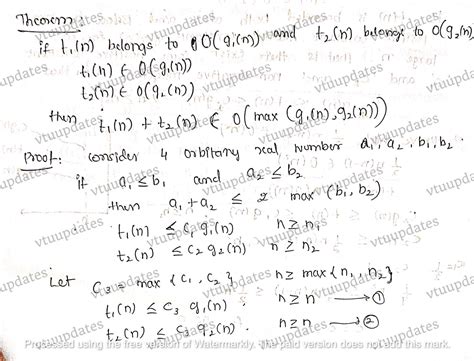 Theorem:
if t₁(n) belongs to O(g₁(n)) and t₂(n) belongs to O(g₂(n)
t₁(n) ∈ O(g₁(n))
t₂(n) ∈ O(g₂(n))
then t₁(n) + t₂(n) ∈ O(max (g₁(n), g₂(n)))
Proof: consider 4 orbitary real number a₁, a₂, b₁, b₂
if a₁ ≤ b₁ and a₂ ≤ b₂
then a₁ + a₂ ≤ 2 max (b₁, b₂)
t₁(n) ≤ c₁ g₁(n) n ≥ n₁
t₂(n) ≤ c₂ g₂(n) n ≥ n₂
Let c₃ = max {c₁, c₂} n ≥ max {n₁, n₂}
t₁(n) ≤ c₃ g₁(n) n ≥ n → ①
t₂(n) ≤ c₃ g₂(n) n ≥ n → ②
Processed using the free version of Watermarkly. The paid version does not add this mark.
vtuupdates